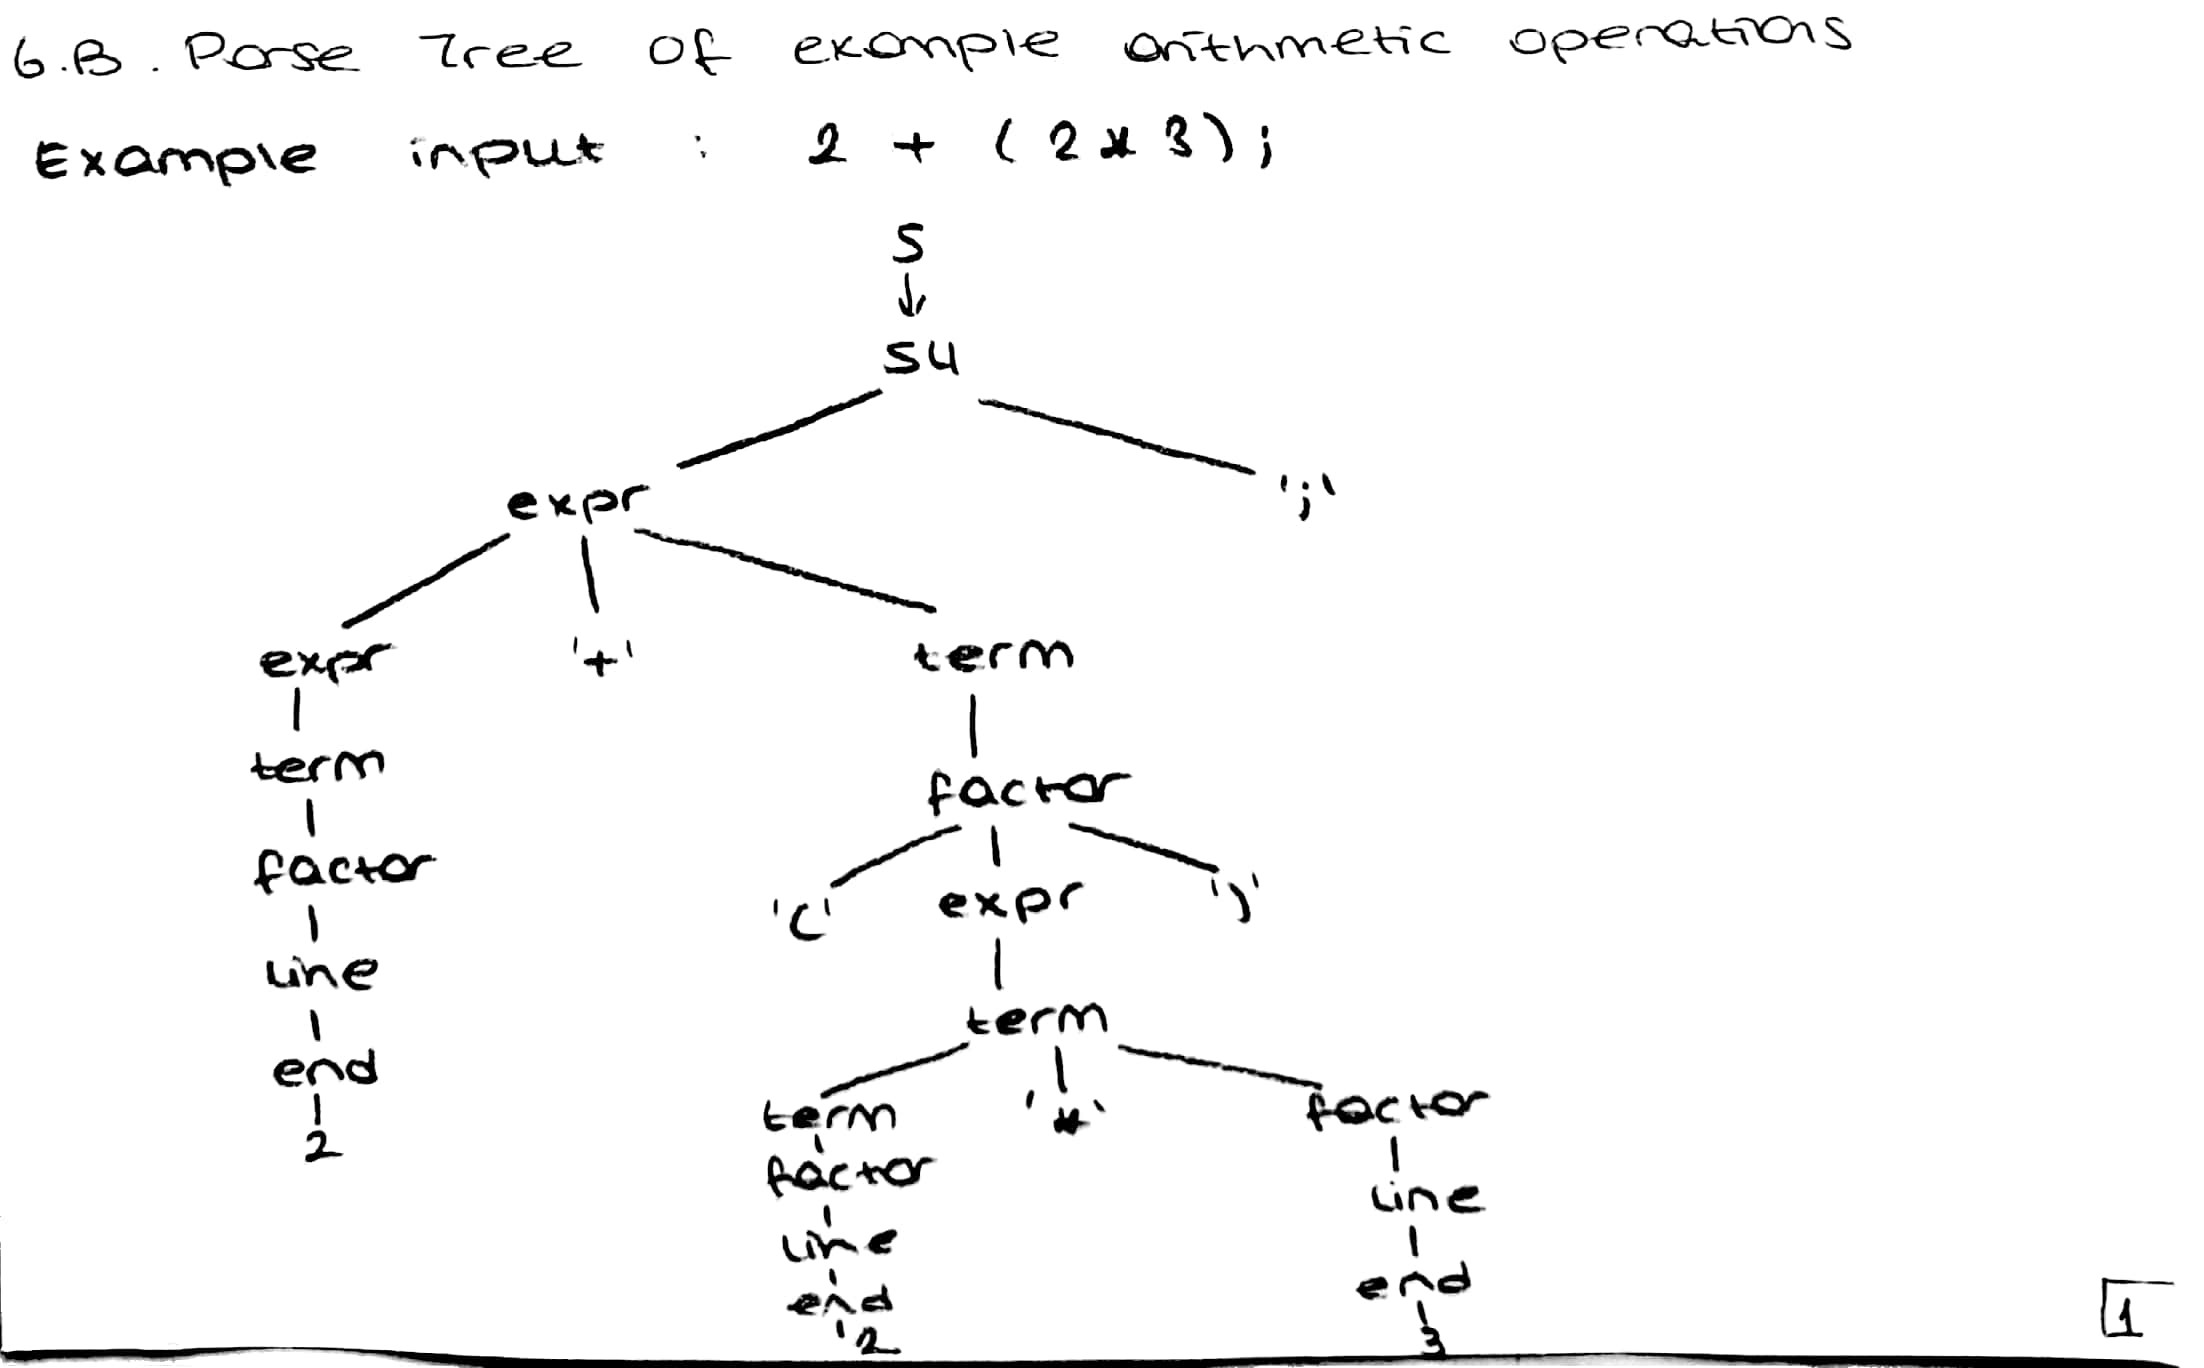 6.B. Parse Tree of example arithmetic operations
Example input : 2 + ( 2 * 3 ) ;
S
S4
expr ';'
expr '+' term
term factor
factor '(' expr ')'
line term
end term '*' factor
2 factor line
line end
end 3
2
1